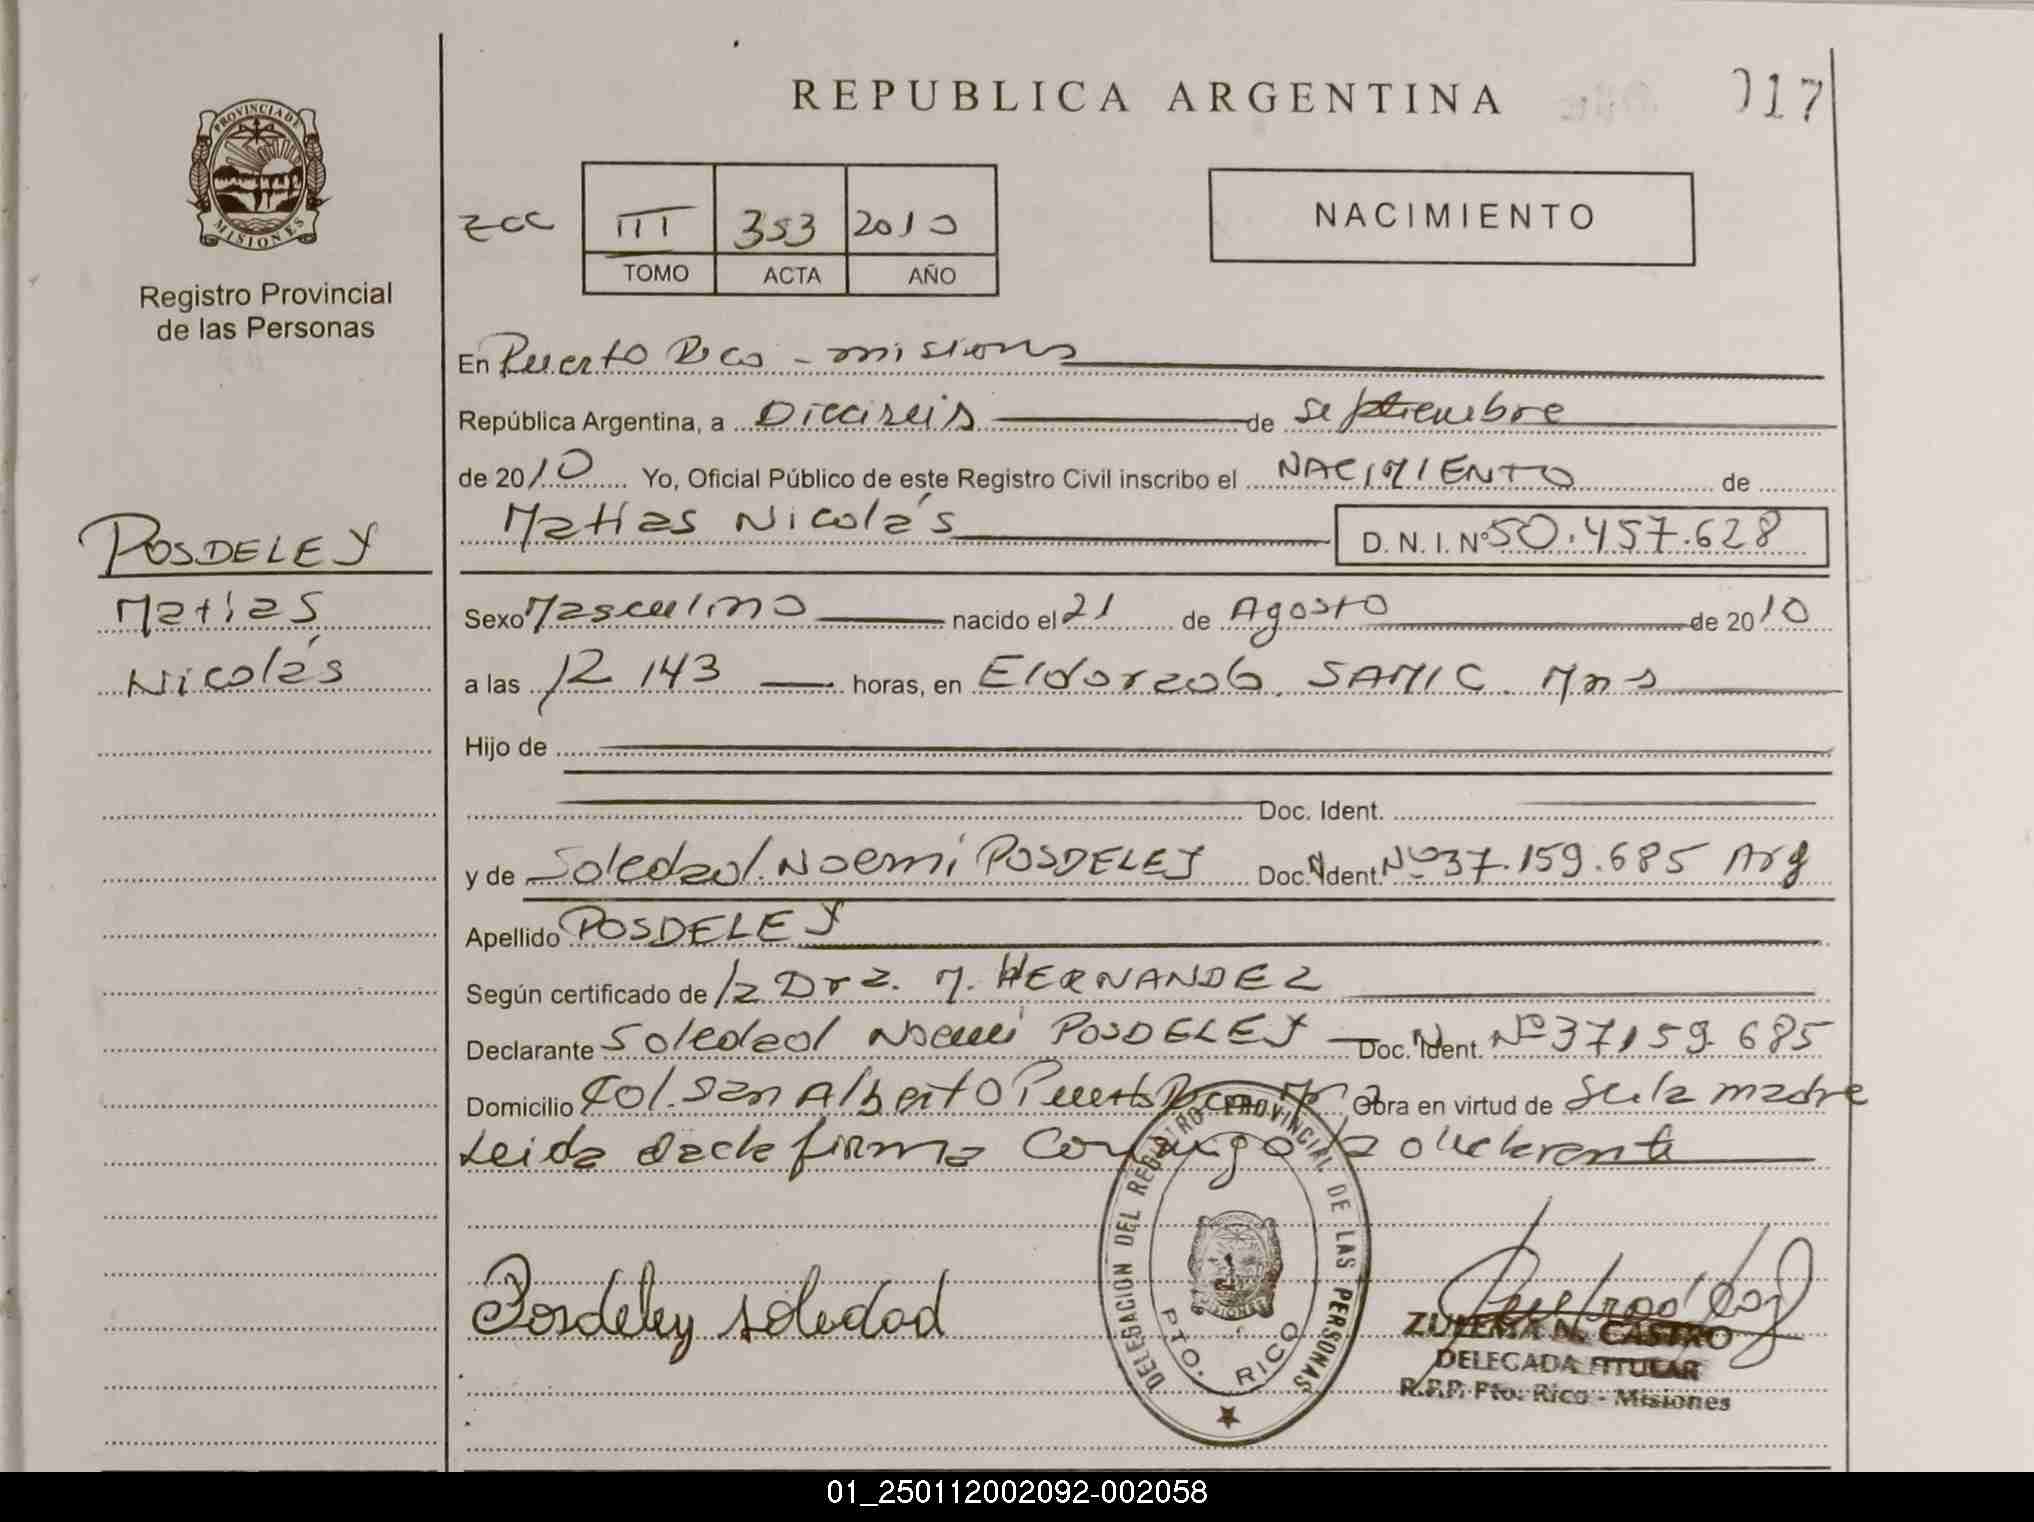 REPUBLICA ARGENTINA
017
PROVINCIA DE MISIONES
Registro Provincial
de las Personas
zcc
III 353 2010
TOMO ACTA AÑO
NACIMIENTO
En Puerto Rico - misiones
República Argentina, a Dieciseis de septiembre
de 2010 Yo, Oficial Público de este Registro Civil inscribo el NACIMIENTO de
Matias Nicolás D.N.I. Nº 50.457.628
POSDELEY
Matias
Nicolás
Sexo Masculino nacido el 21 de Agosto de 2010
a las 12 143 horas, en Eldorado. SAMIC. Mns
Hijo de
Doc. Ident.
y de Soledad Noemi POSDELEY Doc. Ident. Nº 37.159.685 Arg
Apellido POSDELEY
Según certificado de la Dra. M. HERNANDEZ
Declarante Soledad Noemi POSDELEY Doc. Ident. Nº 37159.685
Domicilio Col. San Alberto Puerto Rico Obra en virtud de Ser la madre
Leida acta firma conmigo la declarante
Posdeley Soledad
DELEGACION DEL REGISTRO PROVINCIAL DE LAS PERSONAS
PTO. RICO
MISIONES
ZULEMA N. CASTRO
DELEGADA TITULAR
R.P.P. Pto. Rico - Misiones
01_250112002092-002058